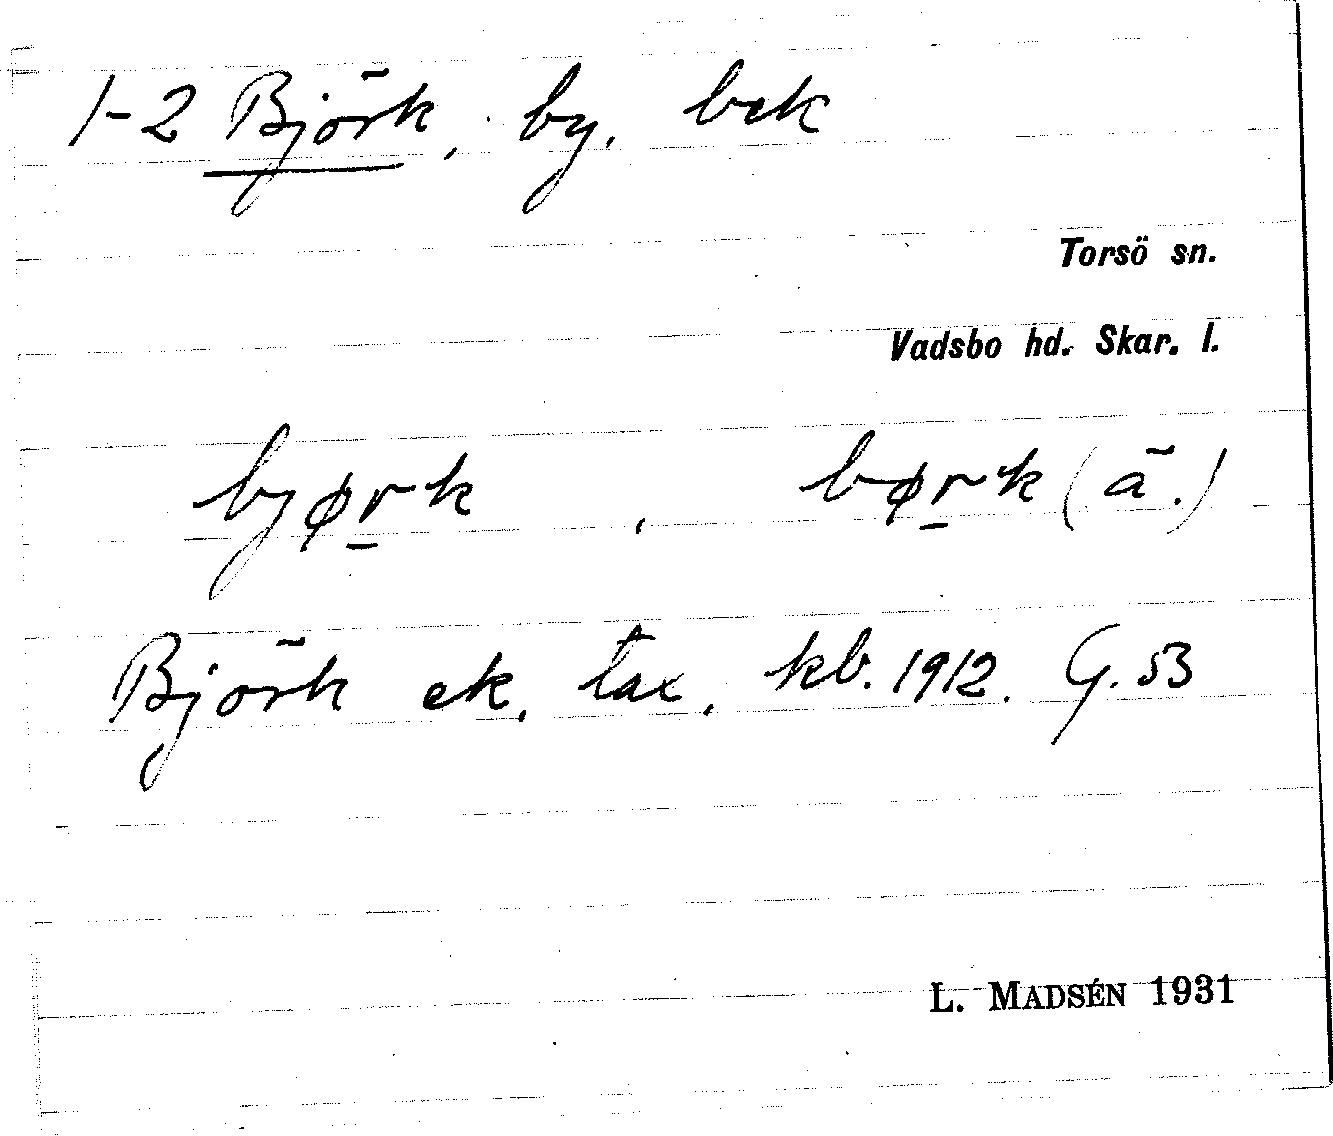 1-2 Björk, by, bek
Torsö sn.
Vadsbo hd. Skar. l.
bjørk, børk (ä.)
Björk ek. tax. kb. 1912. G. 53
L. MADSÉN 1931